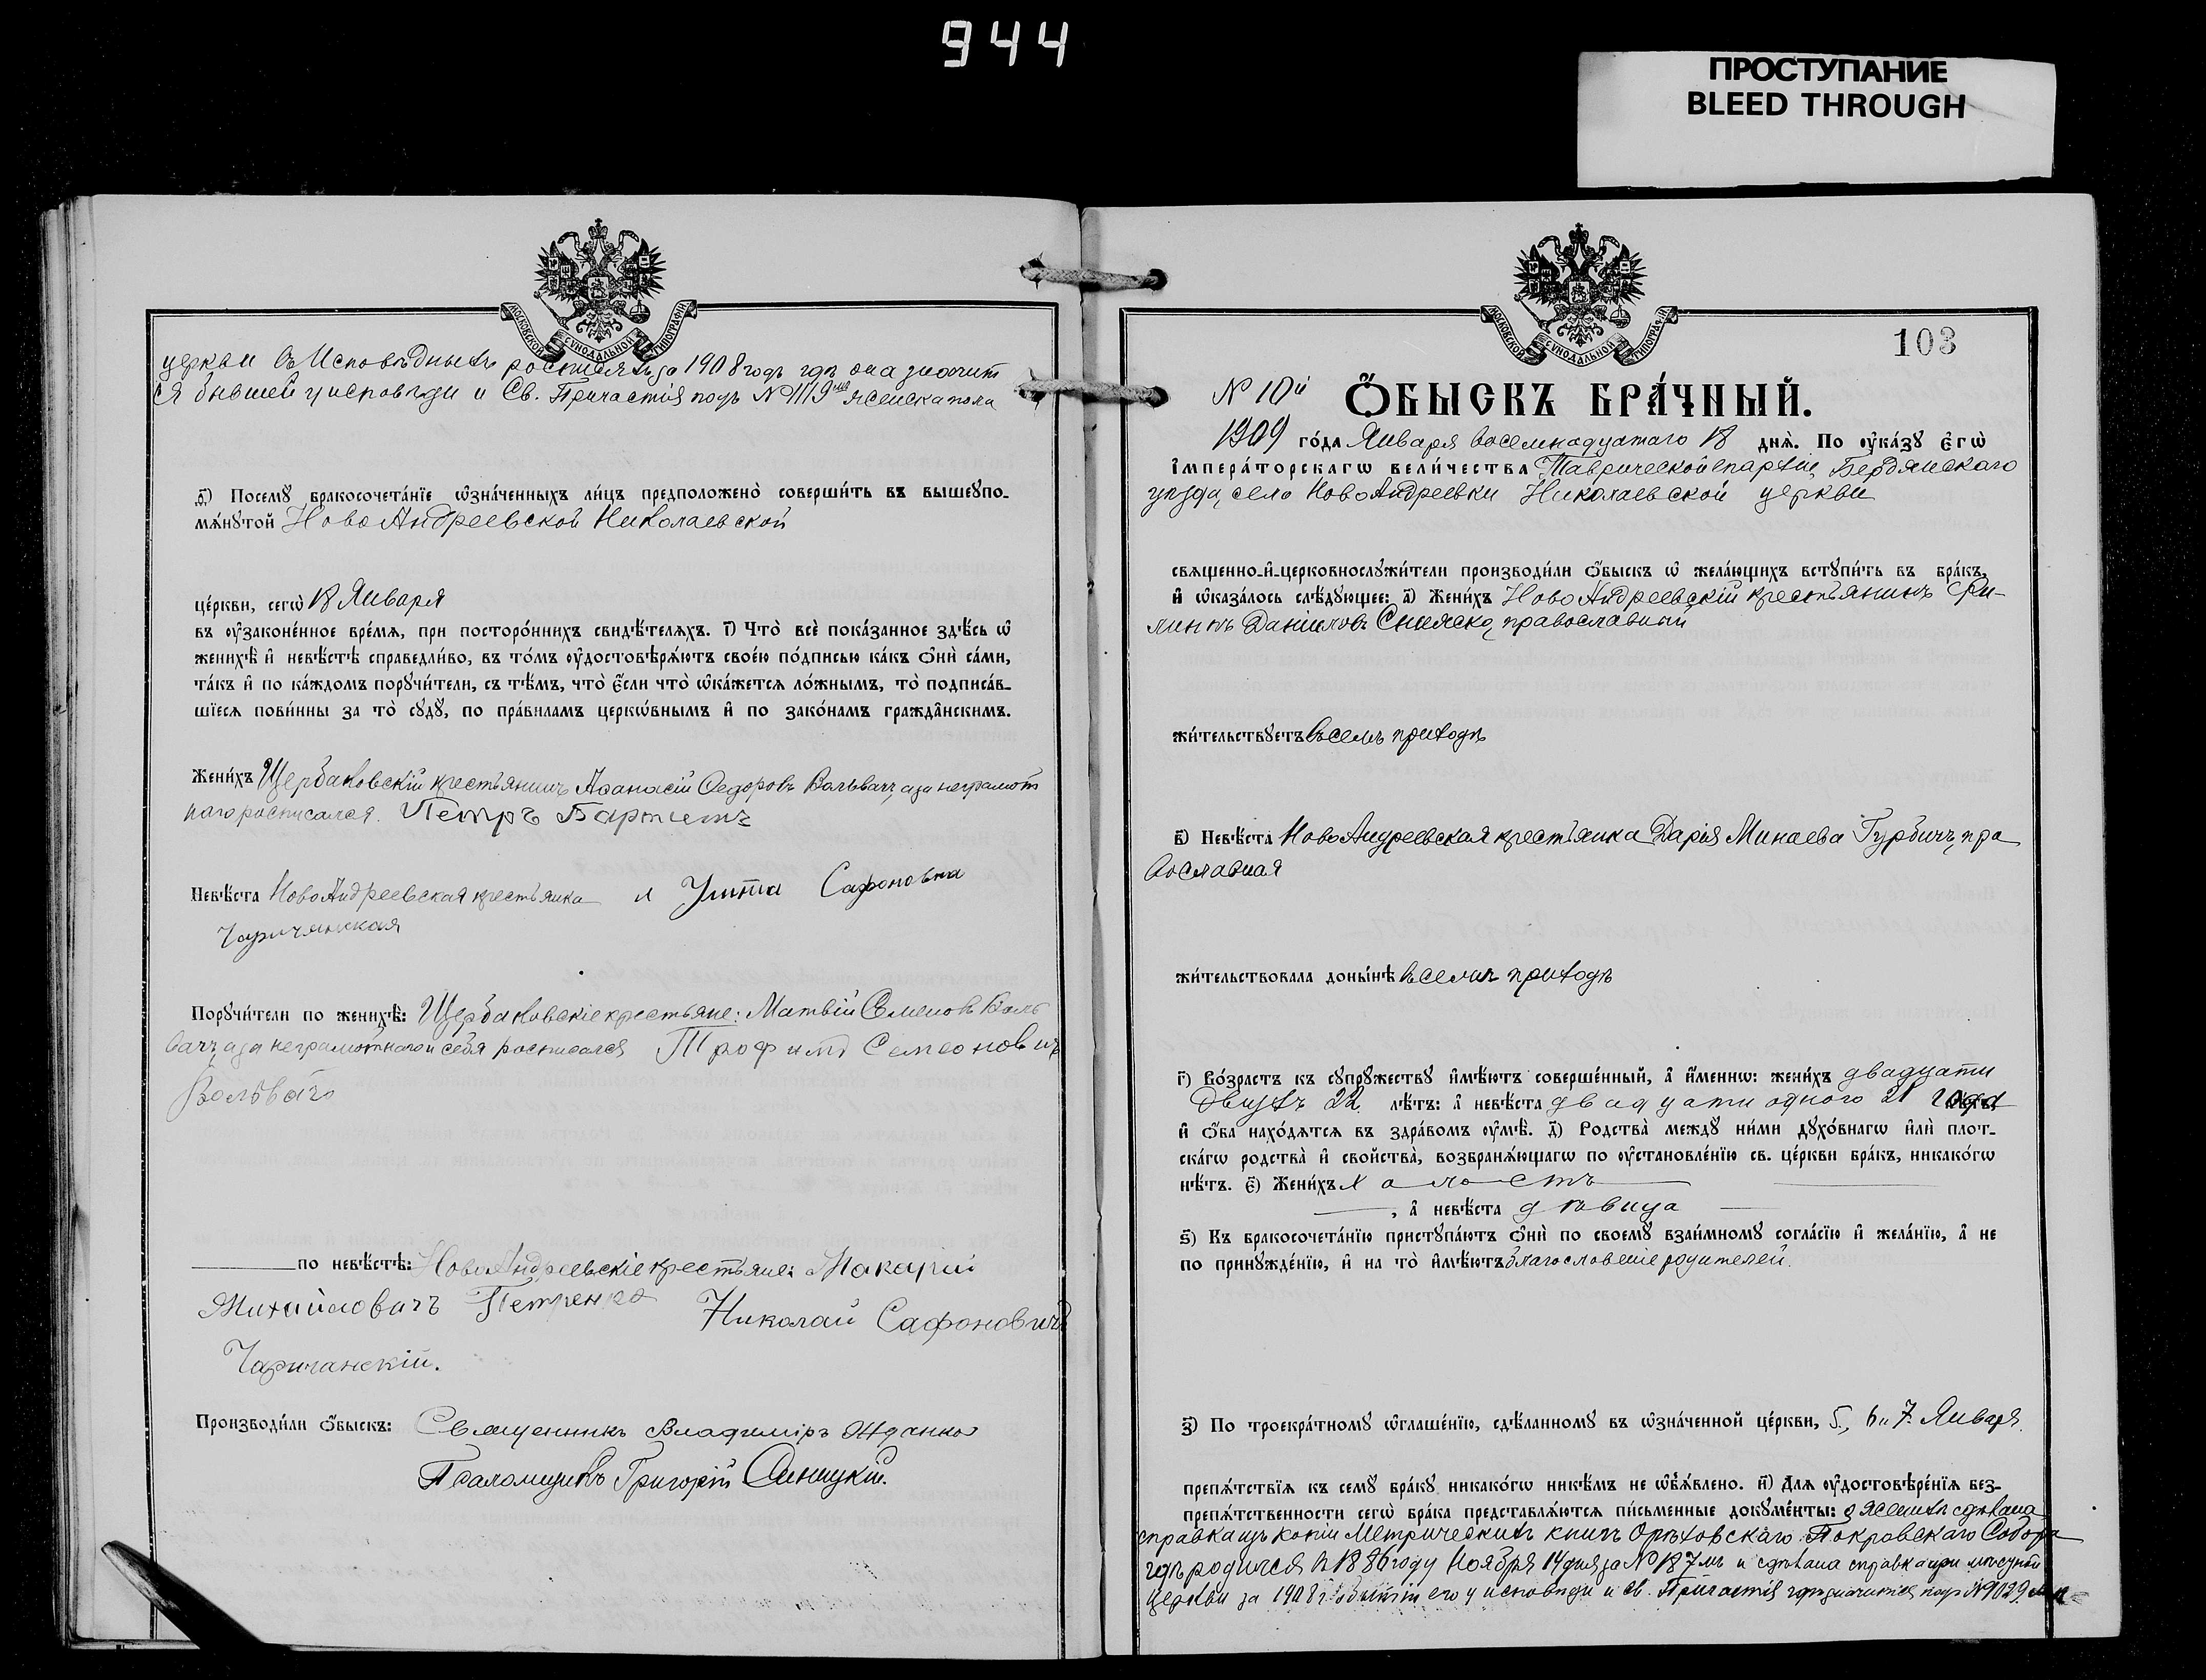 944
ПРОСТУПАНИЕ
BLEED THROUGH
МОСКОВСКОЙ СѴНОДАЛЬНОЙ ТИПОГРАФІИ
церкви въ Исповѣдныхъ росписяхъ за 1908 годъ гдѣ она значит
ся бывшей у исповѣди и Св. Причастія подъ № 1119 женска пола
д҃і) Посемꙋ бракосочета́нїе ѡ҆зна́ченныхъ ли́цъ предположено̀ соверши́ть въ вышеупо-
мѧ́нꙋтой Ново Андреевской Николаевской
це́ркви, сегѡ̀ 18 Января
въ ᲂу҆законе́нное вре́мѧ, при посторо́ннихъ свидѣ́телѧхъ. і҃) Что̀ всѐ пока́занное здѣ́сь ѡ҆
женихѣ̀ и҆ невѣ́стѣ справедли́во, въ то́мъ ᲂу҆достовѣрѧ́ютъ свое́ю по́дписью ка́къ ѻ҆нѝ са́ми,
та́къ и҆ по ка́ждомъ порꙋчи́тели, съ тѣ́мъ, что̀ є҆́сли что̀ ѡ҆ка́жется ло́жнымъ, то̀ подписа́в-
шїеся пови́нны за то̀ сꙋдꙋ̀, по пра́виламъ церко́внымъ и҆ по зако́намъ гражда́нскимъ.
Жени́хъ Щербаковскій крестьянинъ Аѳанасій Ѳедоровъ Вальвачъ, а за неграмот
наго росписался. Петръ
Невѣ́ста Ново Андреевская крестьянка Улита Сафоновна
Чаричанская
Порꙋчи́тели по женихѣ̀: Щербаковскіе крестьяне: Матвій Семеновъ Валь
вачъ, а за неграмотнаго и себя росписался Трофимъ Семеоновичъ
Вольвачъ
по невѣ́стѣ: Ново Андреевскіе крестьяне: Макарій
Михайловичъ Петренко Николай Сафоновичъ
Чаричанскій.
Производи́ли ѻ҆́быскъ: Священникъ Владиміръ Жданко
Псаломщикъ Григорій Синицкій.
МОСКОВСКОЙ СѴНОДАЛЬНОЙ ТИПОГРАФІИ
103
№ 10й ѺБЫСКЪ БРА́ЧНЫЙ.
1909 го́да Января восемнадцатаго 18 днѧ̀. По ᲂу҆ка́зꙋ є҆гѡ̀
і҆мпера́торскагѡ вели́чества Таврической епархіи, Бердянскаго
уѣзда, село Ново Андреевки Николаевской церкви
свѧщенно-и҆-церковнослꙋжи́тели производи́ли ѻ҆́быскъ ѡ҆ жела́ющихъ встꙋпи́ть въ бра́къ,
и҆ ѡ҆каза́лось слѣ́дꙋющее: а҃) Жени́хъ Ново Андреевскій крестьянинъ Фи-
липпъ Даніиловъ православный
жи́тельствꙋетъ въ семъ приходѣ
в҃) Невѣ́ста Ново Андреевская крестьянка Дарія Минаева Гурбичъ, пра
вославная
жи́тельствовала доны́нѣ въ семъ приходѣ
г҃) Во́зрастъ къ сꙋпрꙋ́жествꙋ и҆мѣ́ютъ соверше́нный, а҆ и҆́меннѡ: жени́хъ двадцати
двухъ 22 лѣ́тъ: а҆ невѣ́ста двадцати одного 21 года
и҆ ѻ҆́ба нахо́дѧтсѧ въ здра́вомъ ᲂу҆мѣ̀. д҃) Родства̀ междꙋ ни́ми дꙋхо́внагѡ и҆лѝ плот-
ска́гѡ родства̀ и҆ свойства̀, возбранѧ́ющагѡ по ᲂу҆становле́нїю св. це́ркви бра́къ, никако́гѡ
нѣ́тъ. є҃) Жени́хъ холостъ
, а҆ невѣ́ста дѣвица
ѕ҃) Къ бракосочета́нїю пристꙋпа́ютъ ѻ҆нѝ по своемꙋ̀ взаи́мномꙋ согла́сїю и҆ жела́нїю, а҆ не
по принꙋжде́нїю, и҆ на то̀ и҆мѣ́ютъ благословеніе родителей.
з҃) По троекра́тномꙋ ѡ҆глаше́нїю, сдѣ́ланномꙋ въ ѡ҆зна́ченной це́ркви, 5, 6 и 7 Января.
препѧ́тствїѧ къ семꙋ̀ бра́кꙋ никако́гѡ никѣ́мъ не ѡ҆б̾ѧ́влено. и҃) Для ᲂу҆достовѣре́нїѧ без-
препѧ́тственности сегѡ̀ бра́ка представлѧ́ютсѧ пи́сьменные докꙋме́нты: о женихѣ сдѣлана
справка изъ копіи Метрическихъ книгъ Орѣховскаго Покровскаго Собора
гдѣ родился въ 1886 году Ноября 14 дня за № 187мъ и сдѣлана справка при мѣстной
Церкви за 1908 г. о бытіи его у исповѣди и св. Причастія гдѣ значится подъ № 1029